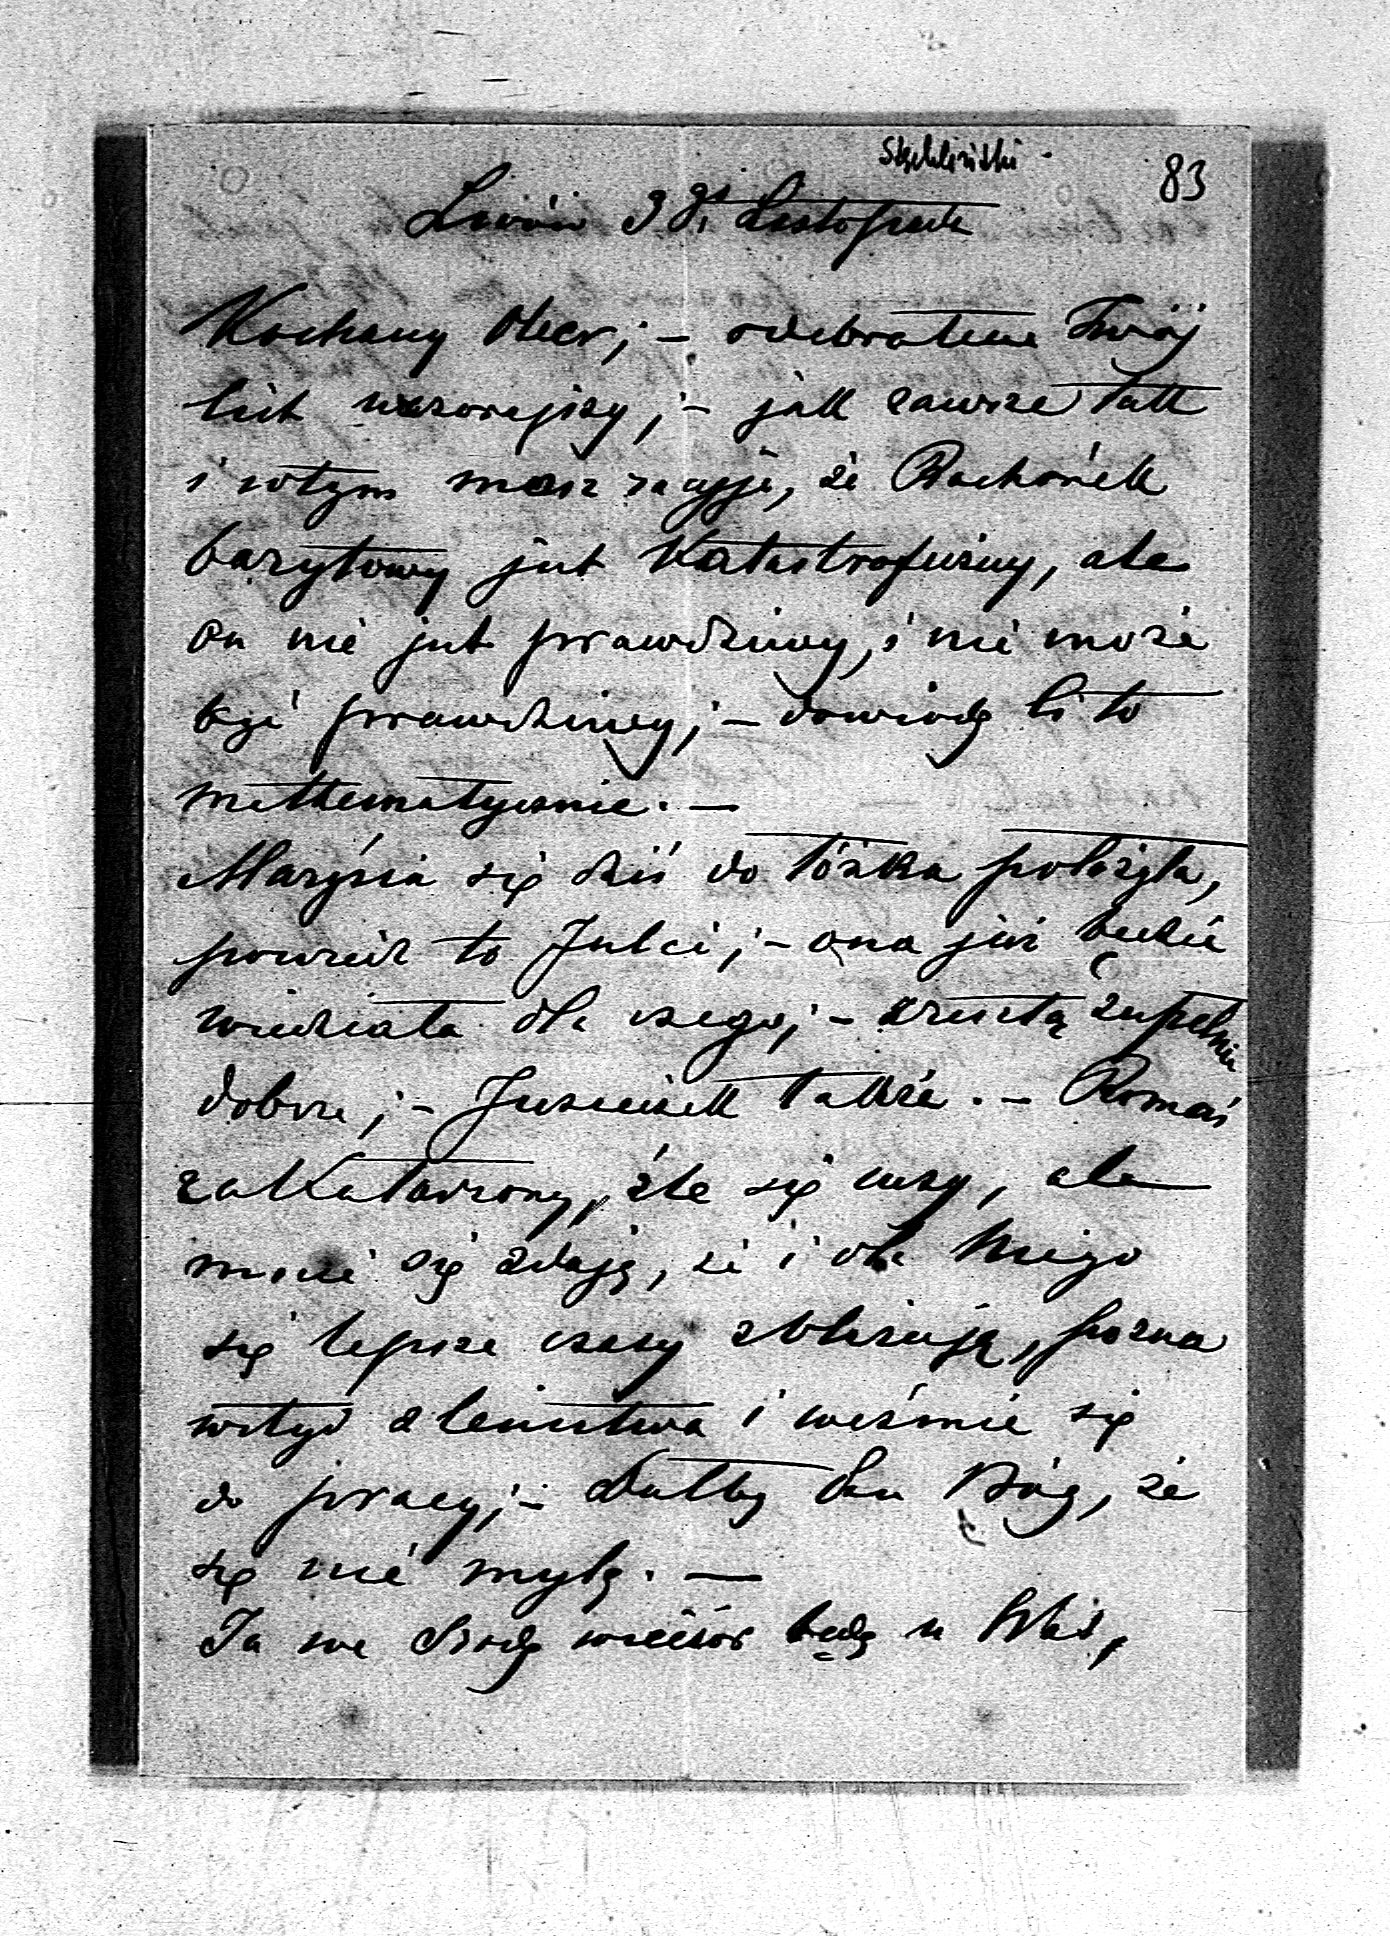 83
Lwów 9 Listopada
Kochany Olesiu; – odebrałem Twój
list wczorajszy; – jak zawsze tak
i w tym masz racyją, że Rachunek
barytowy jest Katastroficzny, ale
on nie jest prawdziwy, i nie może
być prawdziwy; – dowiodę Ci to
mathematycznie. –
Marysia się dziś do łóżka położyła,
powiedz to Julci; – ona już będzie
wiedziała dla czego; – zresztą zupełnie
dobrze; – Juziczek także. – Romcio
zakatarzony, źle się uczy, ale
mnie się zdaje, że i dla niego
się lepsze czasy zbliżają, pozna
wstyd z lenistwa i weźmie się
do pracy; – dałby Pan Bóg, że
się nie mylę. –
Ja we Środę wieczór będę u Was,